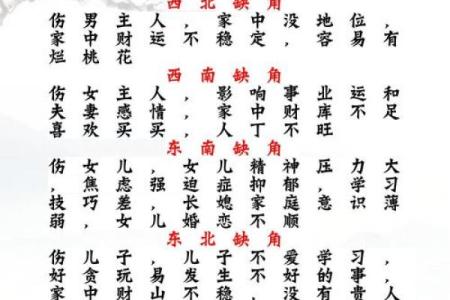 西北缺角
伤男主人，家中没地位，
家中财运不稳定，容易有
烂桃花
西南缺角
伤女主人，影响事业运和
夫妻感情，家中财库不足
喜欢买买，人丁不旺
东南缺角
伤女儿，女儿精神压力大
，焦虑强迫症抑郁，学习
技巧差，长媳家庭意识薄
弱，女婚恋不顺
东北缺角
伤儿子，儿子不爱学习，
好贪玩，易发生不好的事，
家中财山不稳，没有贵人